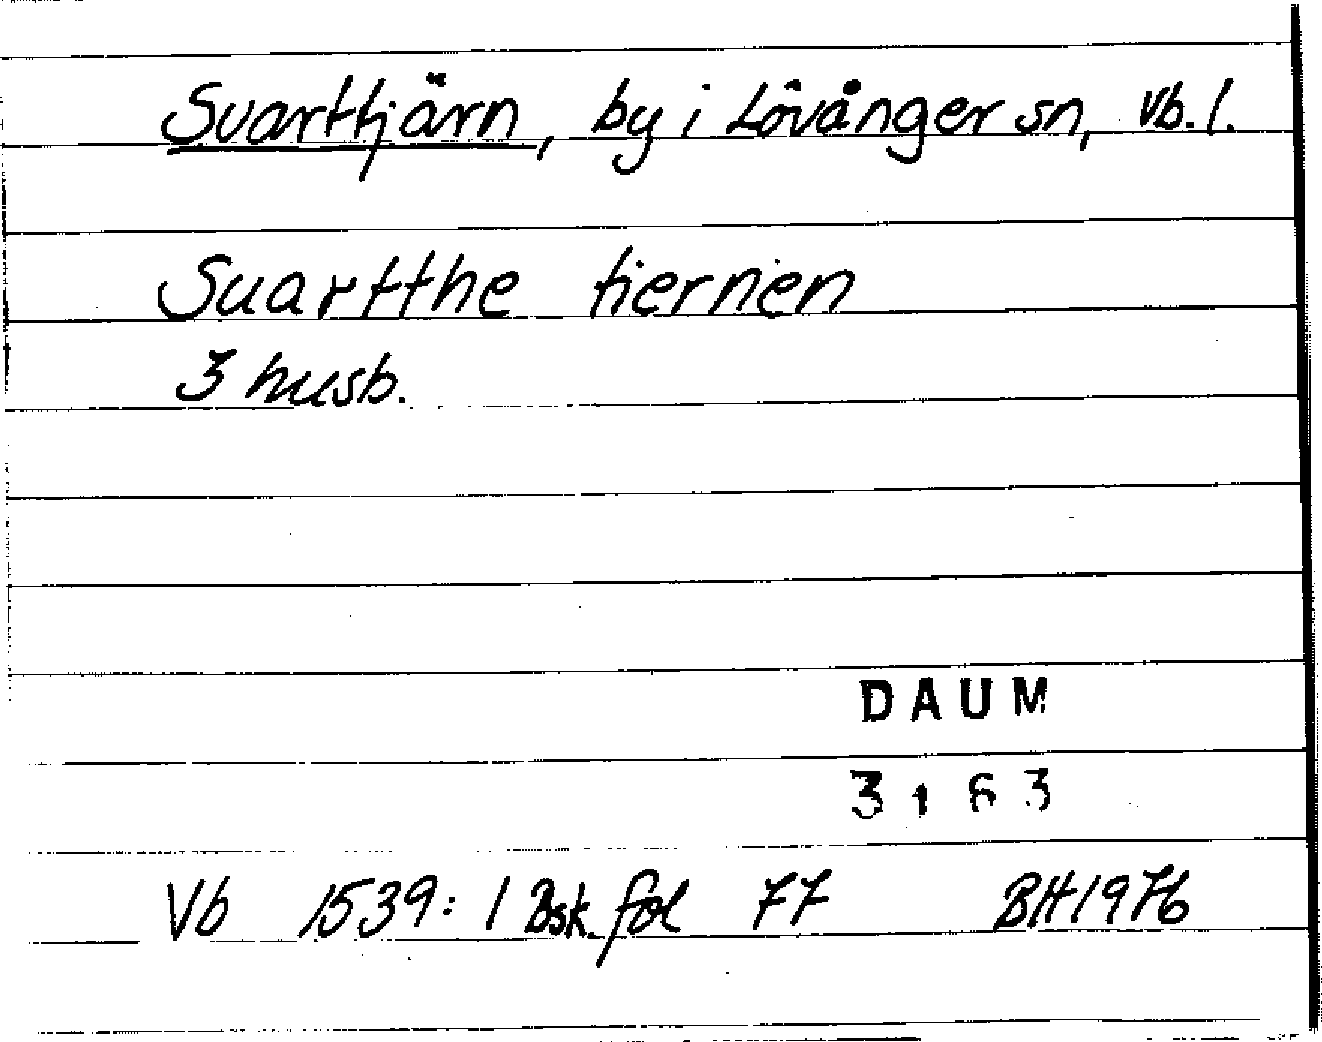 Svarttjärn, by i Lövånger sn, Vb. l.
Suartthe tiernen
3 husb.
DAUM
3163
Vb 1539: 1 Bsk. fol 77 BH 1976